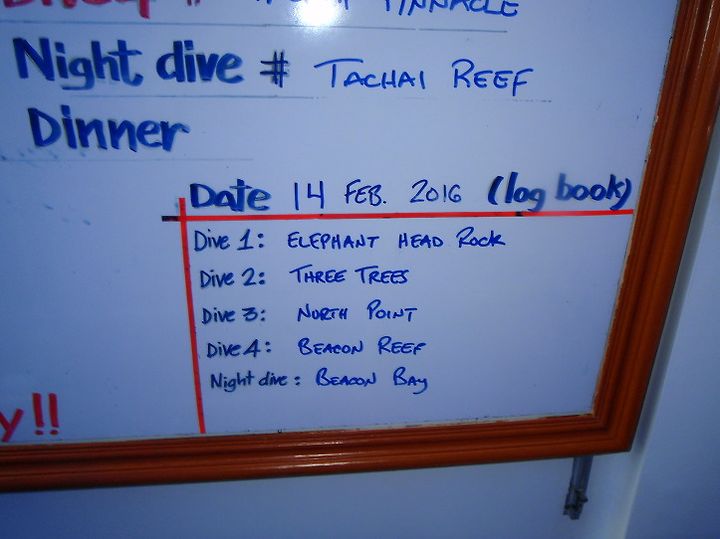 PINNACLE
Night dive # TACHAI REEF
Dinner
Date 14 FEB. 2016 (log book)
Dive 1: ELEPHANT HEAD Rock
Dive 2: THREE TREES
Dive 3: NORTH POINT
Dive 4: BEACON REEF
Night dive: BEACON BAY
y!!